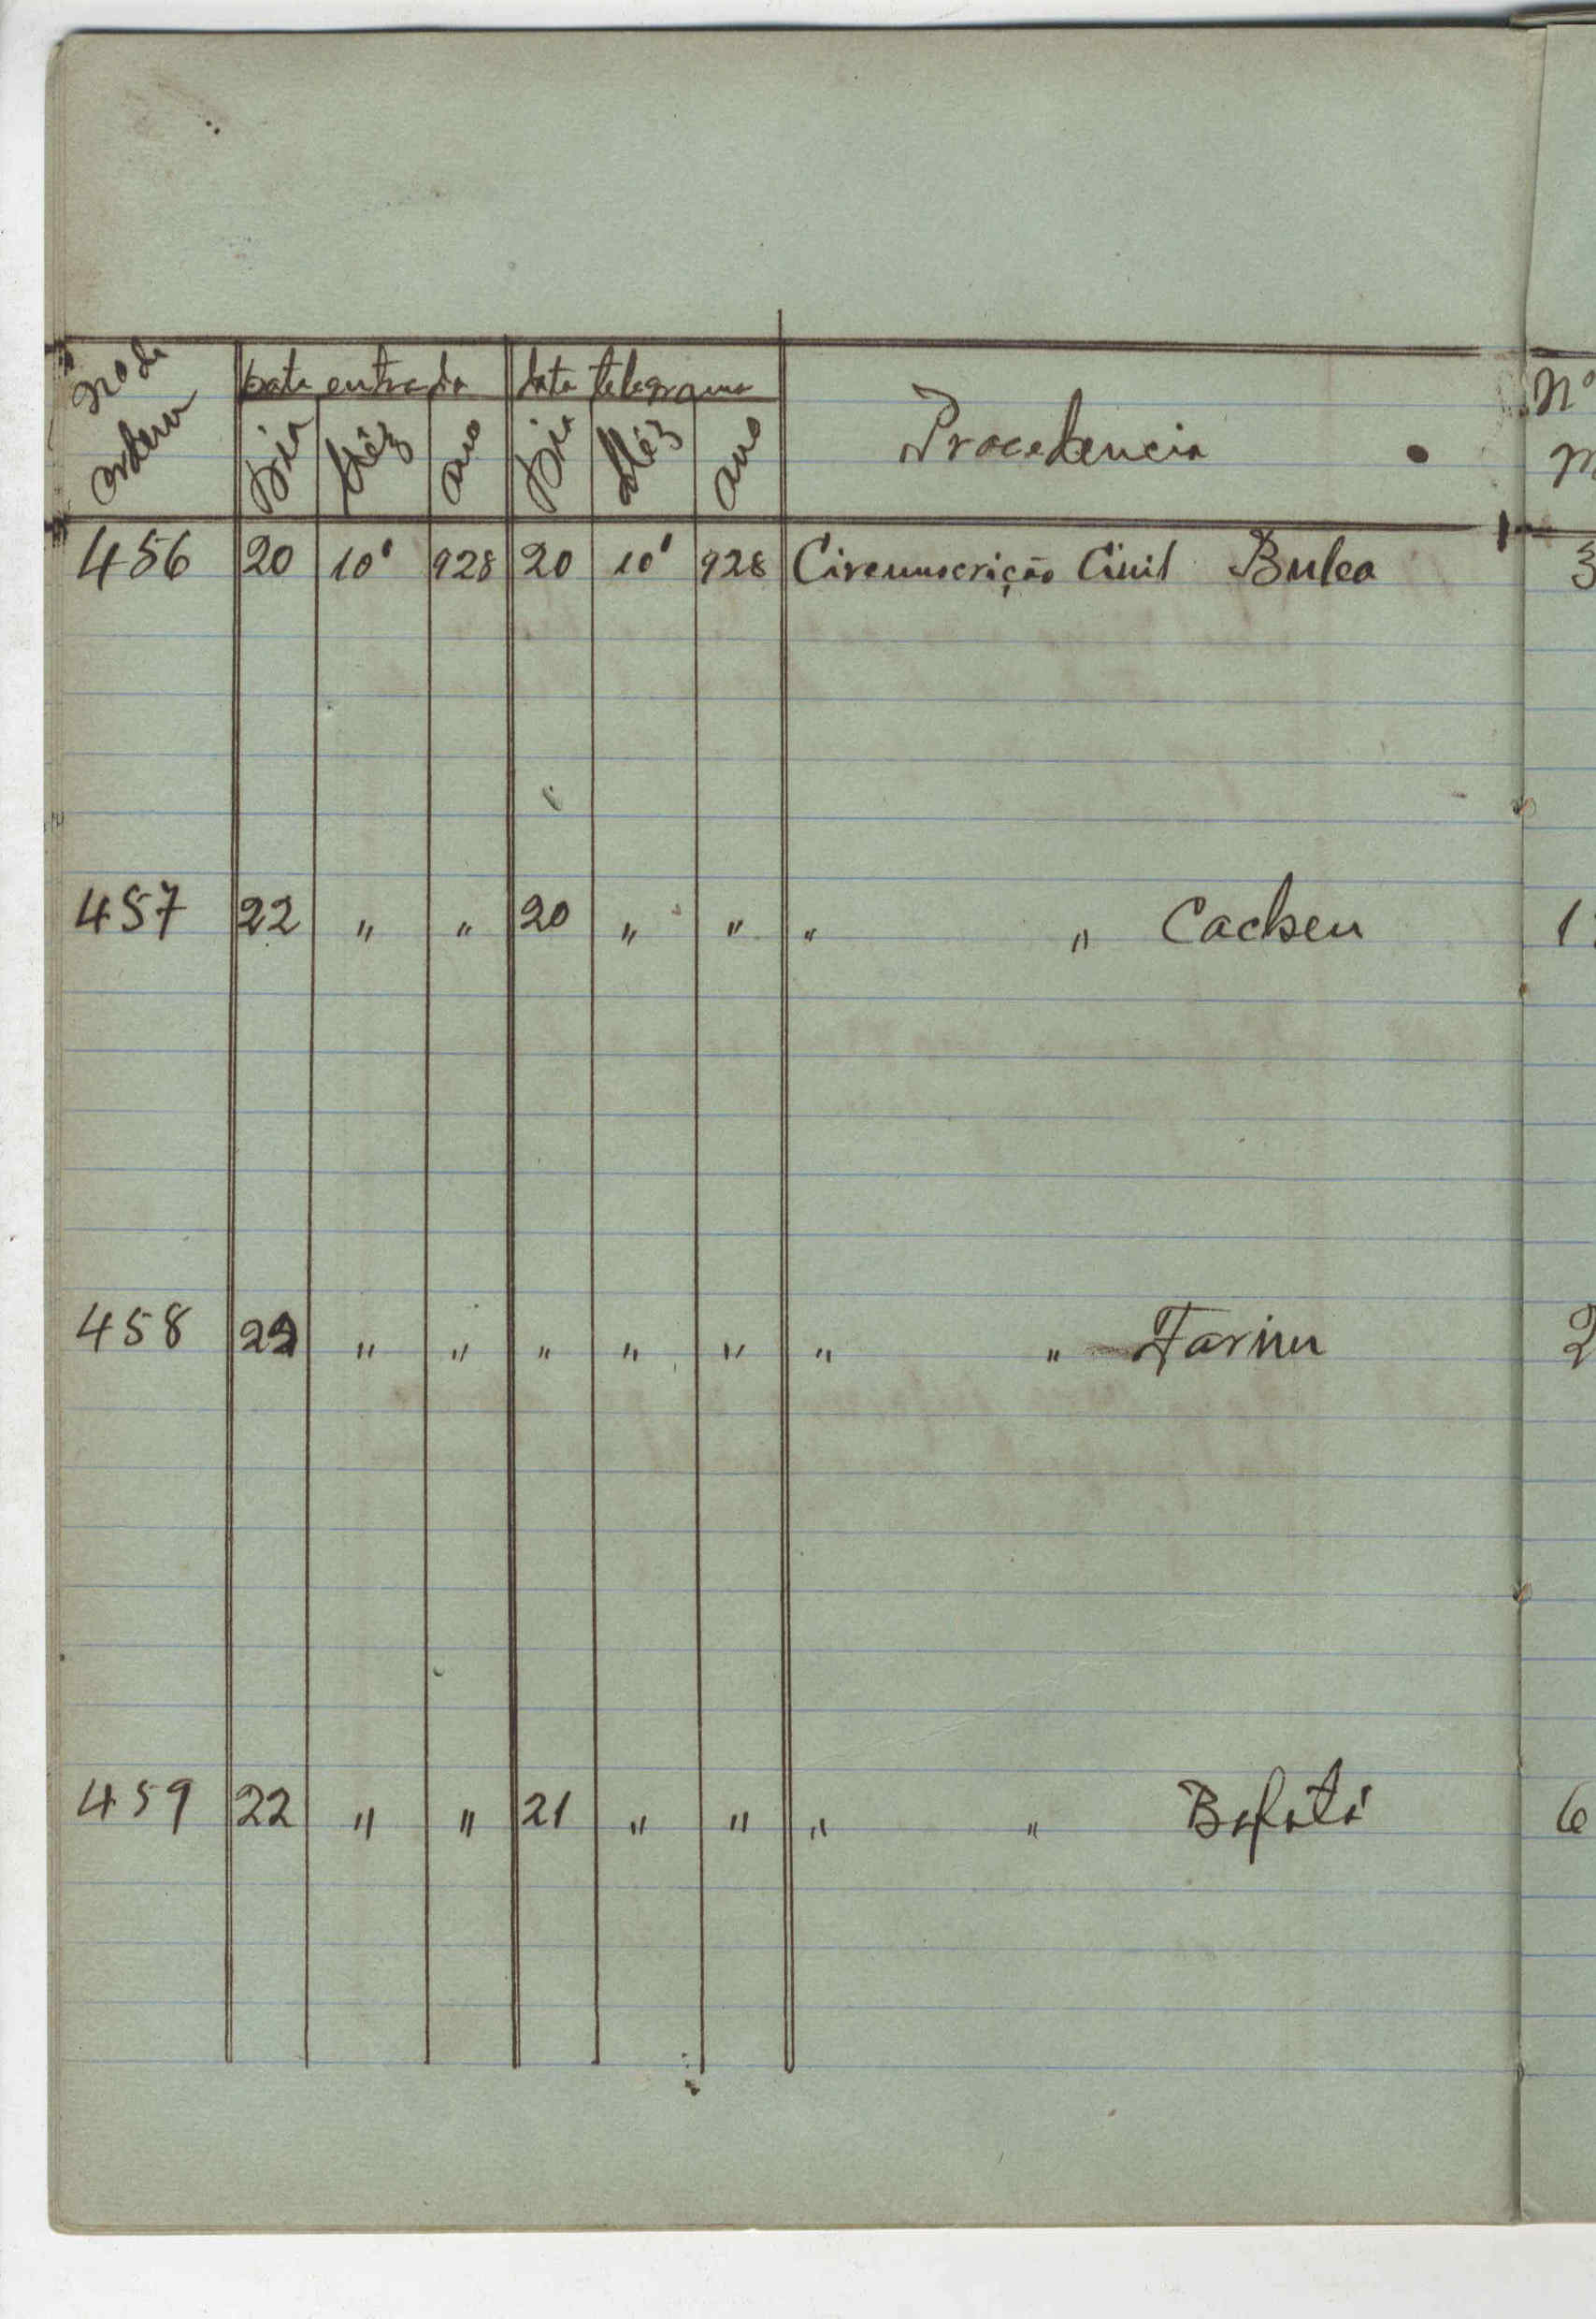 Nº de ordem Data entrada Data telegrama Procedencia Nº
Dia Mêz ano Dia Mêz ano
456 20 10º 928 20 10º 928 Circunscrição Civil Bula 3
457 22 " " 20 " " " " Cacheu 1
458 22 " " " " " " " Farim 2
459 22 " " 21 " " " " Bafatá 6